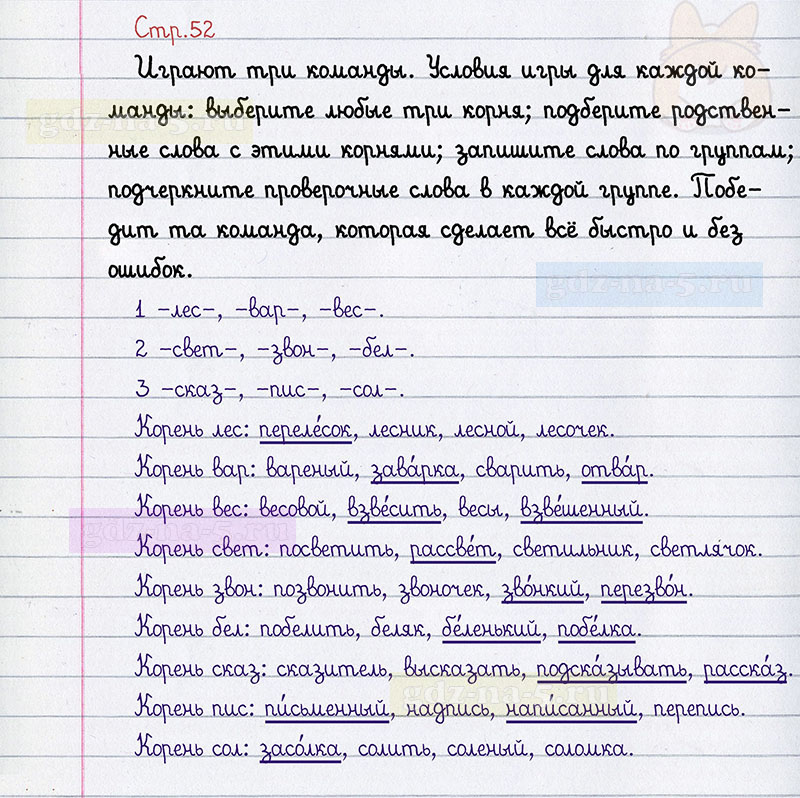 Стр.52
Играют три команды. Условия игры для каждой ко-
манды: выберите любые три корня; подберите родствен-
ные слова с этими корнями; запишите слова по группам;
подчеркните проверочные слова в каждой группе. Побе-
дит та команда, которая сделает всё быстро и без
ошибок.
1 -лес-, -вар-, -вес-.
2 -свет-, -звон-, -бел-.
3 -сказ-, -пис-, -сол-.
Корень лес: переле́сок, лесник, лесной, лесочек.
Корень вар: вареный, зава́рка, сварить, отва́р.
Корень вес: весовой, взве́сить, весы, взве́шенный.
Корень свет: посветить, рассве́т, светильник, светлячок.
Корень звон: позвонить, звоночек, зво́нкий, перезво́н.
Корень бел: побелить, беляк, бе́ленький, побе́лка.
Корень сказ: сказитель, высказать, подска́зывать, расска́з.
Корень пис: пи́сьменный, надпись, напи́санный, перепись.
Корень сол: засо́лка, солить, соленый, соломка.
gdz-na-5.ru
gdz-na-5.ru
gdz-na-5.ru
gdz-na-5.ru